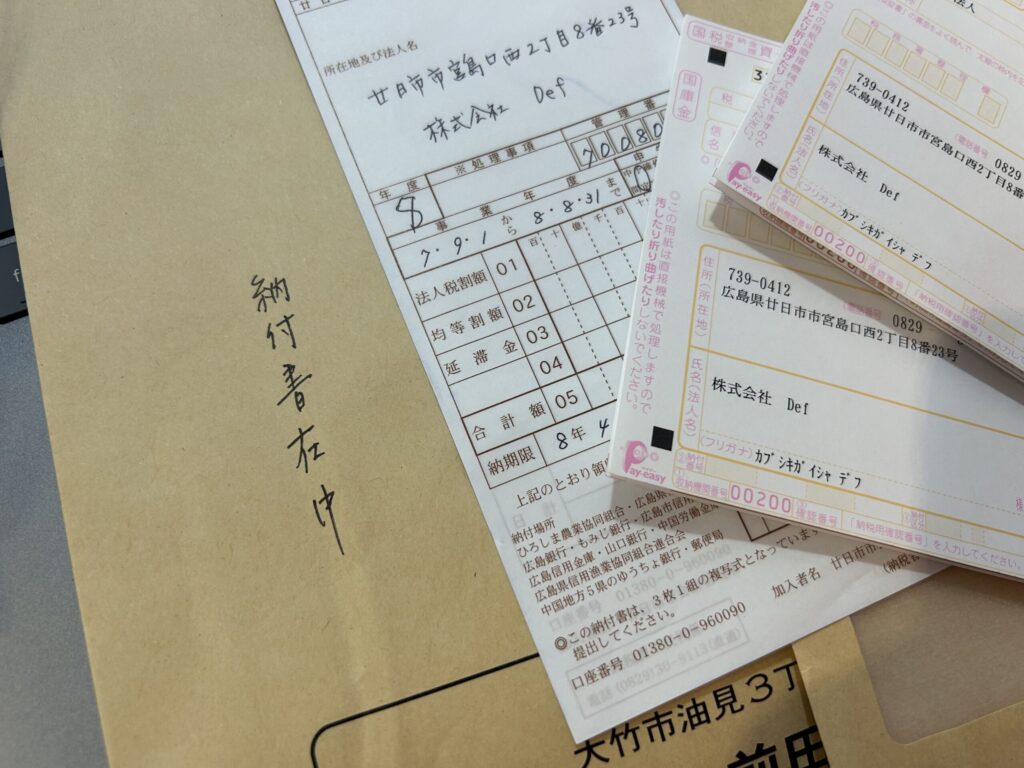 納付書在中
所在地及び法人名
廿日市市宮島口西2丁目8番23号
株式会社 Def
※処理事項
管理番
70080
年度
8
事業年度
7・9・1
から
8・8・31
まで
百十億千百十
法人税割額 01
均等割額 02
延滞金 03
04
合計額 05
納期限
8年4
上記のとおり領
納付場所
ひろしま農業協同組合・広島県
広島銀行・もみじ銀行・広島市信用
広島信用金庫・山口銀行・中国労働金庫
広島県信用漁業協同組合連合会
中国地方5県のゆうちょ銀行・郵便局
◎この納付書は、3枚1組の複写式となっています
提出してください。
口座番号 01380-0-960090
加入者名 廿日市市
電話 (0829)30-9113(直通)
国税
国庫金
税
○この用紙は直接機械で処理しますので
汚したり折り曲げたりしないでください。
住所(所在地)
739-0412
電話番号 0829
広島県廿日市市宮島口西2丁目8番23号
氏名(法人名)
株式会社 Def
(フリガナ) カブシキガイシャ デフ
Pay-easy
収納機関番号 00200
確認番号
「納税用確認番号」を入力してください。
法人
住所(所在地)
739-0412
電話番号 0829
広島県廿日市市宮島口西2丁目8番
氏名(法人名)
株式会社 Def
(フリガナ) カブシキガイシャ デフ
Pay-easy
収納機関番号 00200
確認番号
「納税用確認番号」を入力し
大竹市油見3丁
前田